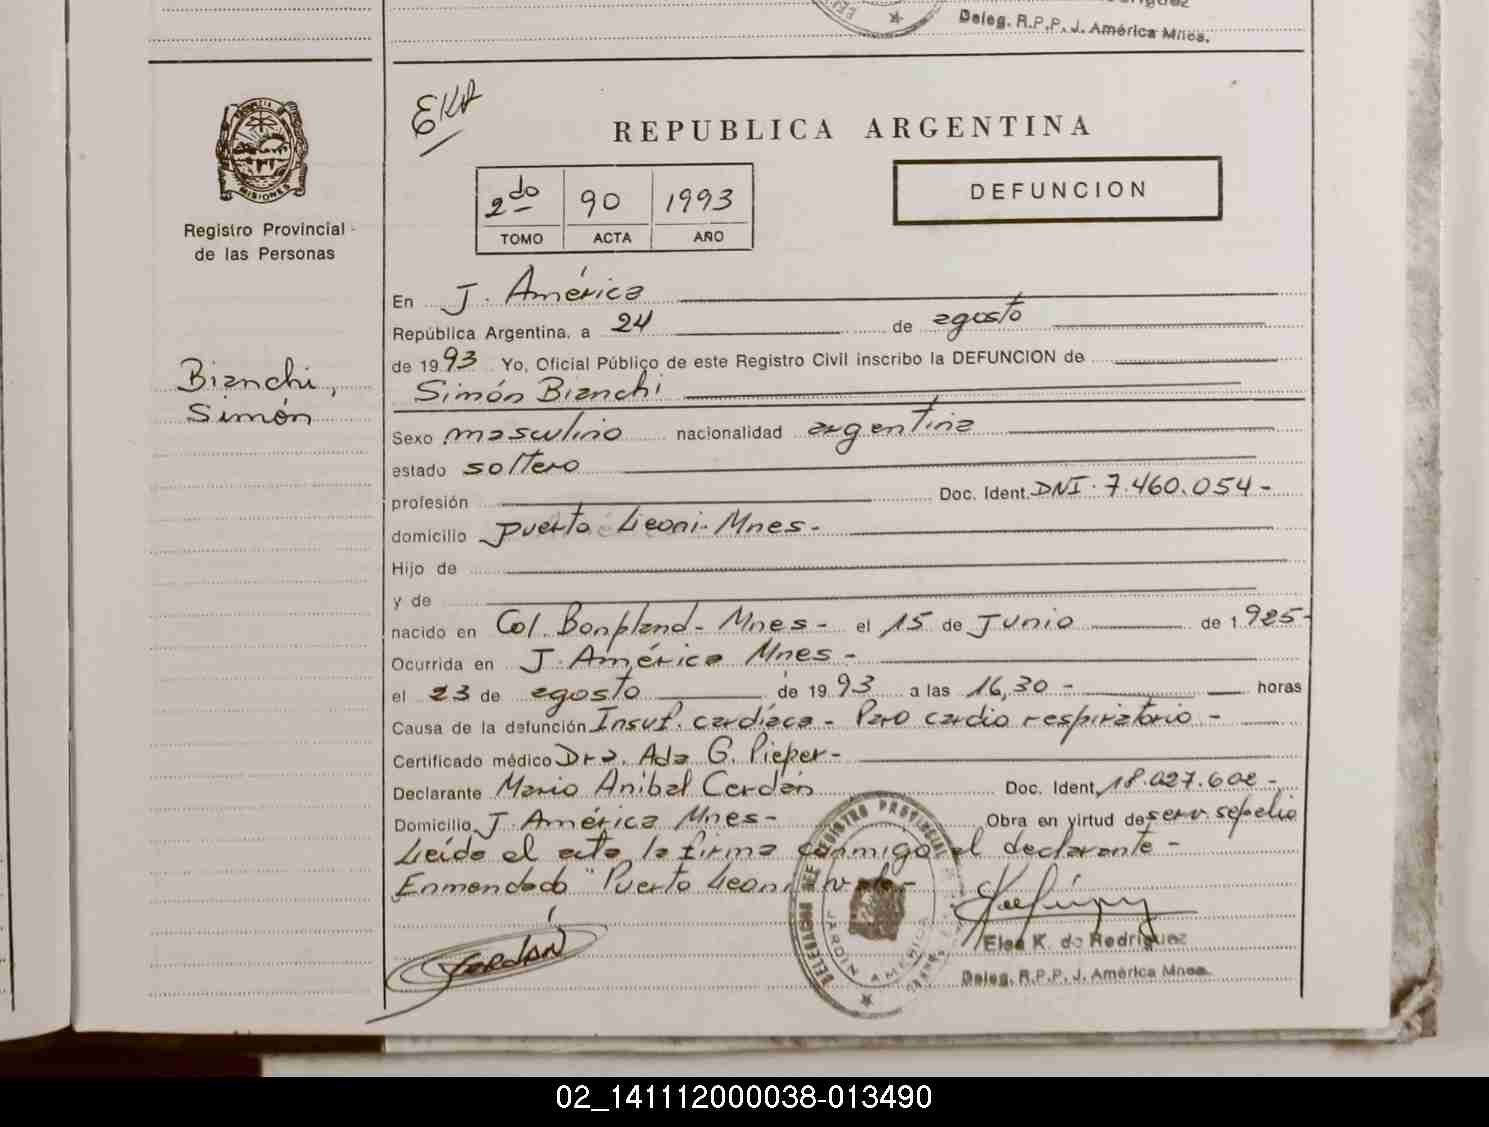 Deleg. R.P.P. J. América Mnes.
EKA
REPUBLICA ARGENTINA
2do 90 1993
TOMO ACTA AÑO
DEFUNCION
MISIONES
Registro Provincial
de las Personas
Bianchi,
Simón
En J. América
República Argentina, a 24 de agosto
de 1993 Yo, Oficial Público de este Registro Civil inscribo la DEFUNCION de
Simón Bianchi
Sexo masculino nacionalidad argentina
estado soltero
profesión Doc. Ident. DNI. 7.460.054-
domicilio puerto Leoni-Mnes-
Hijo de
y de
nacido en Col. Bonpland- Mnes- el 15 de Junio de 1.925-
Ocurrida en J. América Mnes-
el 23 de agosto de 1993 a las 16,30- horas
Causa de la defunción Insuf. cardíaca- Paro cardio respiratorio-
Certificado médico Dra. Ada G. Pieper-
Declarante Mario Anibal Cerdán Doc. Ident. 18.027.602-
Domicilio J. América Mnes- Obra en virtud de serv. sepelio
Leída el acta la firma conmigo el declarante-
Enmendado "Puerto Leoni
CERDÁN
DELEGACION DEL REGISTRO PROVINCIAL
JARDIN AMERICA
Elsa K. de Rodriguez
Deleg. R.P.P. J. América Mnes.
02_141112000038-013490